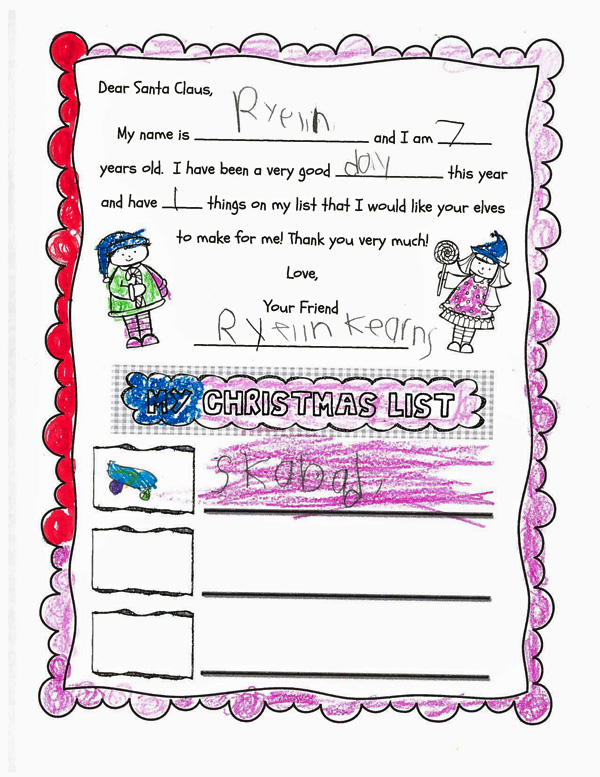 Dear Santa Claus,
My name is Ryelin and I am 7
years old. I have been a very good day this year
and have 1 things on my list that I would like your elves
to make for me! Thank you very much!
Love,
Your Friend
Ryelin Kearns
MY CHRISTMAS LIST
skabad,